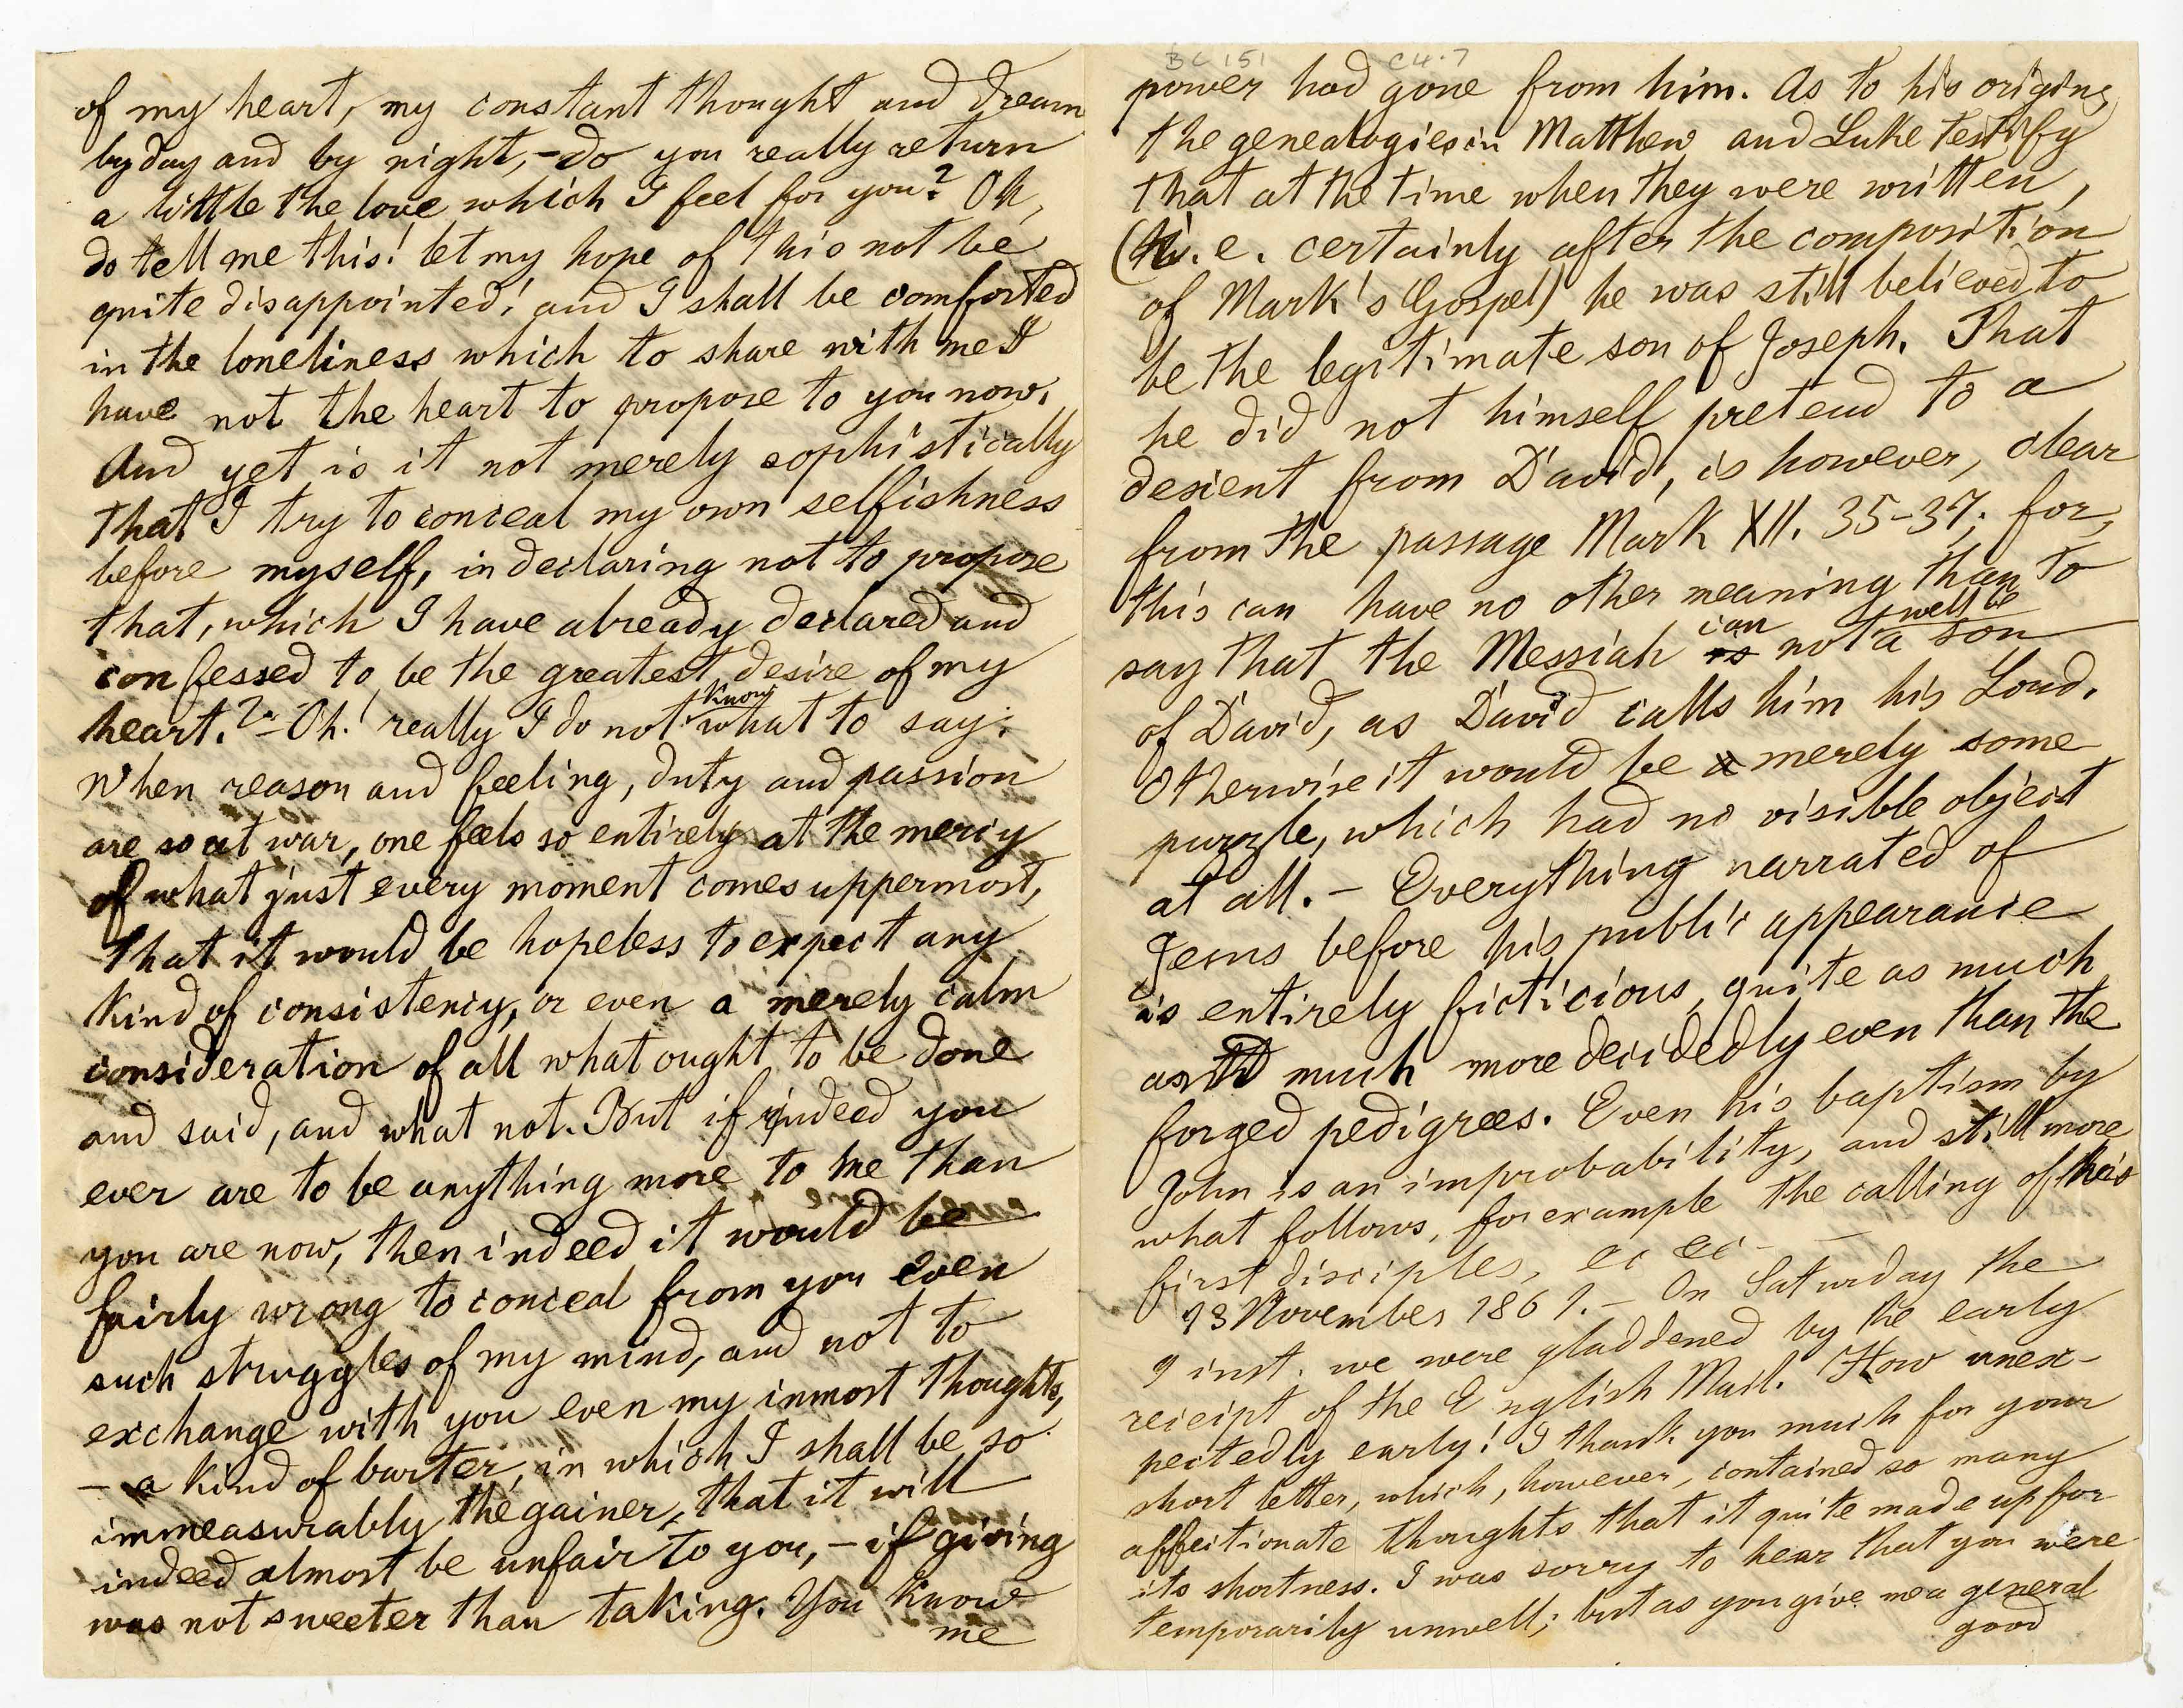 of my heart, my constant thought and dream
by day and by night, - do you really return
a little the love which I feel for you? Oh,
do tell me this! let my hope of this not be
quite disappointed! and I shall be comforted
in the loneliness which to share with me I
have not the heart to propose to you now.
And yet is it not merely sophistically
that I try to conceal my own selfishness
before myself, in declaring not to propose
that, which I have already declared and
confessed to be the greatest desire of my
heart.? - Oh! really I do not know what to say.
When reason and feeling, duty and passion
are so at war, one feels so entirely at the mercy
of what just every moment comes uppermost,
that it would be hopeless to expect any
kind of consistency, or even a merely calm
consideration of all what ought to be done
and said, and what not. But if indeed you
ever are to be anything more to me than
you are now, then indeed it would be
fairly wrong to conceal from you even
such struggles of my mind, and not to
exchange with you even my inmost thoughts,
- a kind of barter, in which I shall be so
immeasurably the gainer, that it will
indeed almost be unfair to you, - if giving
was not sweeter than taking. You know
me
BC 151 C4.7
power had gone from him. As to his origins,
the genealogies in Matthew and Luke testify
that at the time when they were written,
(i.e. certainly after the composition
of Mark's Gospel) he was still believed to
be the legitimate son of Joseph. That
he did not himself pretend to a
descent from David, is however, clear
from the passage Mark XII. 35-37; for,
this can have no other meaning than to
say that the Messiah is can not well be a son
of David, as David calls him his Lord.
Otherwise it would be a merely some
puzzle, which had no visible object
at all. - Everything narrated of
Jesus before his public appearance
is entirely ficticious, quite as much
as much more decidedly even than the
forged pedigrees. Even his baptism by
John is an improbability, and still more
what follows, for example the calling of his
first disciples, ec ec -
13 November 1861. - On Saturday the
9 inst. we were gladdened by the early
receipt of the English Mail. How unex-
pectedly early! I thank you much for your
short letter, which, however, contained so many
affectionate thoughts that it quite made up for
its shortness. I was sorry to hear that you were
temporarily unwell; but as you give me a general
good